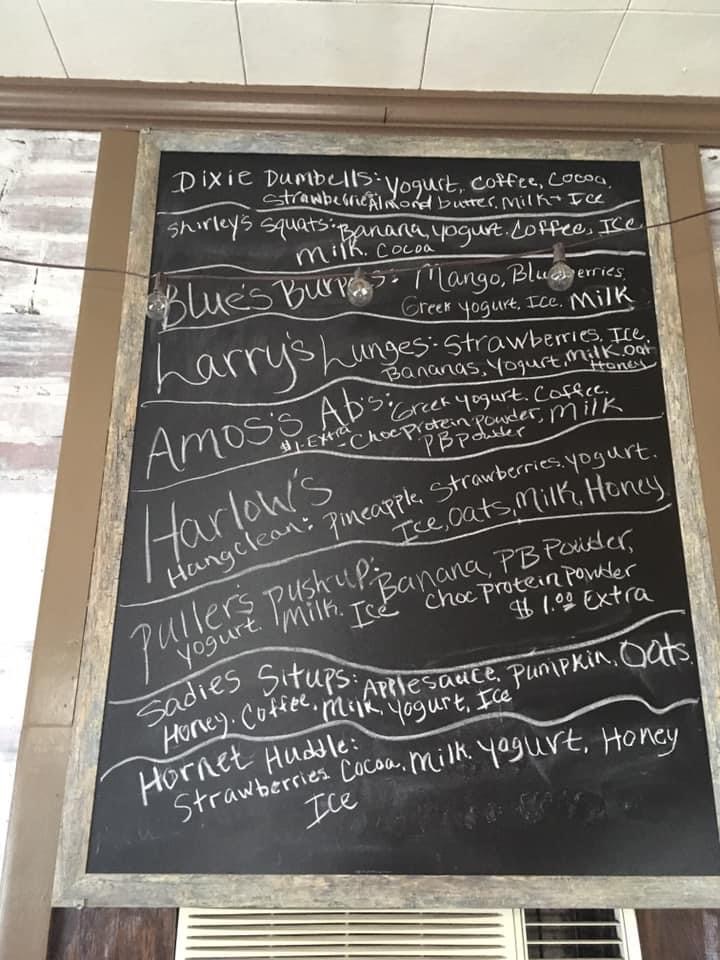 Dixie Dumbells: Yogurt, Coffee, Cocoa,
Strawberries Almond butter, Milk + Ice
Shirley's Squats: Banana, yogurt. Coffee, Ice
Milk. Cocoa
Blue's : Mango, Blueberries,
Greek yogurt, Ice, Milk
Larry's Lunges: Strawberries, Ice,
Bananas, Yogurt, Milk, oat
Honey
Amos's Ab's: Greek Yogurt. Coffee.
$1. Extra - Choc Protein Powder, Milk
PB Powder
Harlow's
Hangclean: Pineapple, Strawberries, yogurt.
Ice, oats, Milk, Honey
Puller's Pushup: Banana, PB Powder,
Yogurt. Milk. Ice Choc Protein Powder
$ 1.00 Extra
Sadies Situps: Applesauce, Pumpkin, Oats,
Honey. Coffee. Milk, Yogurt, Ice
Hornet Huddle:
Strawberries Cocoa, Milk. Yogurt, Honey
Ice